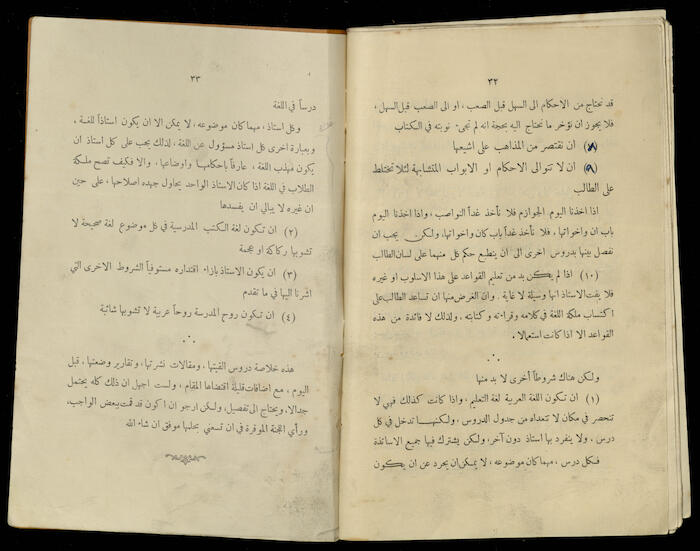 ٣٢
قد نحتاج من الاحكام الى السهل قبل الصعب ، او الى الصعب قبل السهل ،
فلا يجوز ان نؤخر ما نحتاج اليه بحجة انه لم تجىء نوبته في الكتاب
(٨) ان نقتصر من المذاهب على اشيعها
(٩) ان لا تتوالى الاحكام او الابواب المتشابهة لئلا تختلط
على الطالب
اذا اخذنا اليوم الجوازم فلا نأخذ غداً النواصب ، واذا اخذنا اليوم
باب ان واخواتها ، فلا نأخذ غداً باب كان واخواتها ، ولكن يجب ان
نفصل بينها بدروس اخرى الى ان ينطبع حكم كل منهما على لسان الطالب
(١٠) اذا لم يكن بد من تعليم القواعد على هذا الاسلوب او غيره
فلا يفت الاستاذ انها وسيلة لا غاية . وان الغرض منها ان تساعد الطالب على
اكتساب ملكة اللغة في كلامه وقراءته وكتابته ، ولذلك لا فائدة من هذه
القواعد الا اذا كانت استعمالا .
∴
ولكن هناك شروطاً أخرى لا بد منها
(١) ان تكون اللغة العربية لغة التعليم ، واذا كانت كذلك فهي لا
تنحصر في مكان لا تتعداه من جدول الدروس ، ولكنهـا تدخل في كل
درس ، ولا ينفرد بها استاذ دون آخر ، ولكن يشترك فيها جميع الاساتذة
فكل درس ، مهما كان موضوعه ، لا يمكن ان يجرد عن ان يكون
٣٣
درساً في اللغة
وكل استاذ ، مهما كان موضوعه ، لا يمكن الا ان يكون استاذاً للغـة ،
وبعبارة اخرى كل استاذ مسؤول عن اللغة ، لذلك يجب على كل استاذ ان
يكون مهذب اللغة ، عارفاً باحكامهـا واوضاعها ، والا فكيف تصح ملكة
الطلاب في اللغة اذا كان الاستاذ الواحد يحاول جهده اصلاحها ، على حين
ان غيره لا يبالي ان يفسدها
(٢) ان تكون لغة الكتب المدرسية في كل موضوع لغة صحيحة لا
تشوبها ركاكة او عجمة
(٣) ان يكون الاستاذ بازاء اقتداره مستوفياً الشروط الاخرى التي
اشرنا اليها في ما تقدم
(٤) ان تكون روح المدرسة روحاً عربية لا تشوبها شائبة
∴
هذه خلاصة دروس القيتها ، ومقالات نشرتها ، وتقارير وضعتها ، قبل
اليوم ، مع اضافات قليلة اقتضاها المقام ، ولست اجهل ان ذلك كله يحتمل
جدالا ، ويحتاج الى تفصيل ، ولكن ارجو ان اكون قد قمت ببعض الواجب ،
ورأي اللجنة الموقرة في ان تسعني بحلمها موفق ان شاء الله